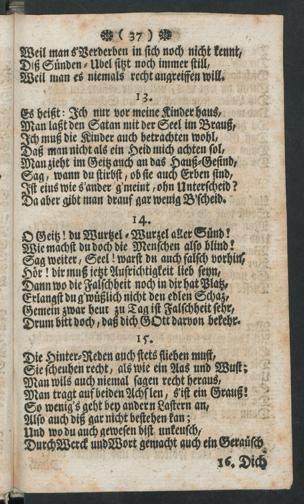 ( 37 )
Weil man s'Verderben in sich noch nicht kennt,
Diß Sünden-Ubel sitzt noch immer still,
Weil man es niemals recht angreiffen will.
13.
Es heißt: Ich nur vor meine Kinder haus,
Man laßt den Satan mit der Seel im Brauß,
Ich muß die Kinder auch betrachten wohl,
Daß man nicht als ein Heid mich achten sol,
Man zieht im Geitz auch an das Hauß-Gesind,
Sag, wann du stirbst, ob sie auch Erben sind,
Ist eins wie s'ander g'meint, ohn Unterscheid?
Da aber gibt man drauf gar wenig B'scheid.
14.
O Geitz! du Wurtzel, Wurzel aller Sünd!
Wie machst du doch die Menschen also blind!
Sag weiter, Seel! warst du auch falsch vorhin,
Hör! dir muß jetzt Aufrichtigkeit lieb seyn,
Dann wo die Falschheit noch in dir hat Platz,
Erlangst du g'wüßlich nicht den edlen Schaz,
Gemein zwar heut zu Tag ist Falschheit sehr,
Drum bitt doch, daß dich GOtt darvon bekehr.
15.
Die Hinter-Reden auch stets fliehen must,
Sie scheuhen recht, als wie ein Aas und Wust;
Man wils auch niemal sagen recht heraus,
Man tragt auf beiden Achslen, s'ist ein Grauß!
So wenig's geht bey andern Lastern an,
Also auch diß gar nicht bestehen kan;
Und wo du auch gewesen bist unkeusch,
Durch Werck und Wort gemacht auch ein Geräusch
16. Dich